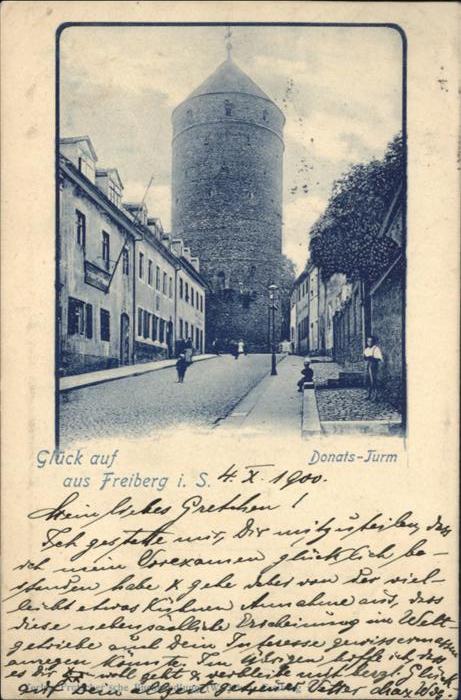 Glück auf
aus Freiberg i. S. 4. X. 1900.
Donats-Turm
Mein liebes Gretchen!
Ich gestatte mir, Dir mitzuteilen, dass
ich mein Vorexamen glücklich be-
standen habe & gehe dabei von der viel-
leicht etwas kühnen Annahme aus, dass
diese nebensächliche Erscheinung im Welt-
getriebe auch Dein Interesse gewissermassen
anregen könnte. Im Übrigen hoffe ich, dass
es Dir wohl geht & verbleibe mit bergl. Glück
auf Dein getreuer Vetter